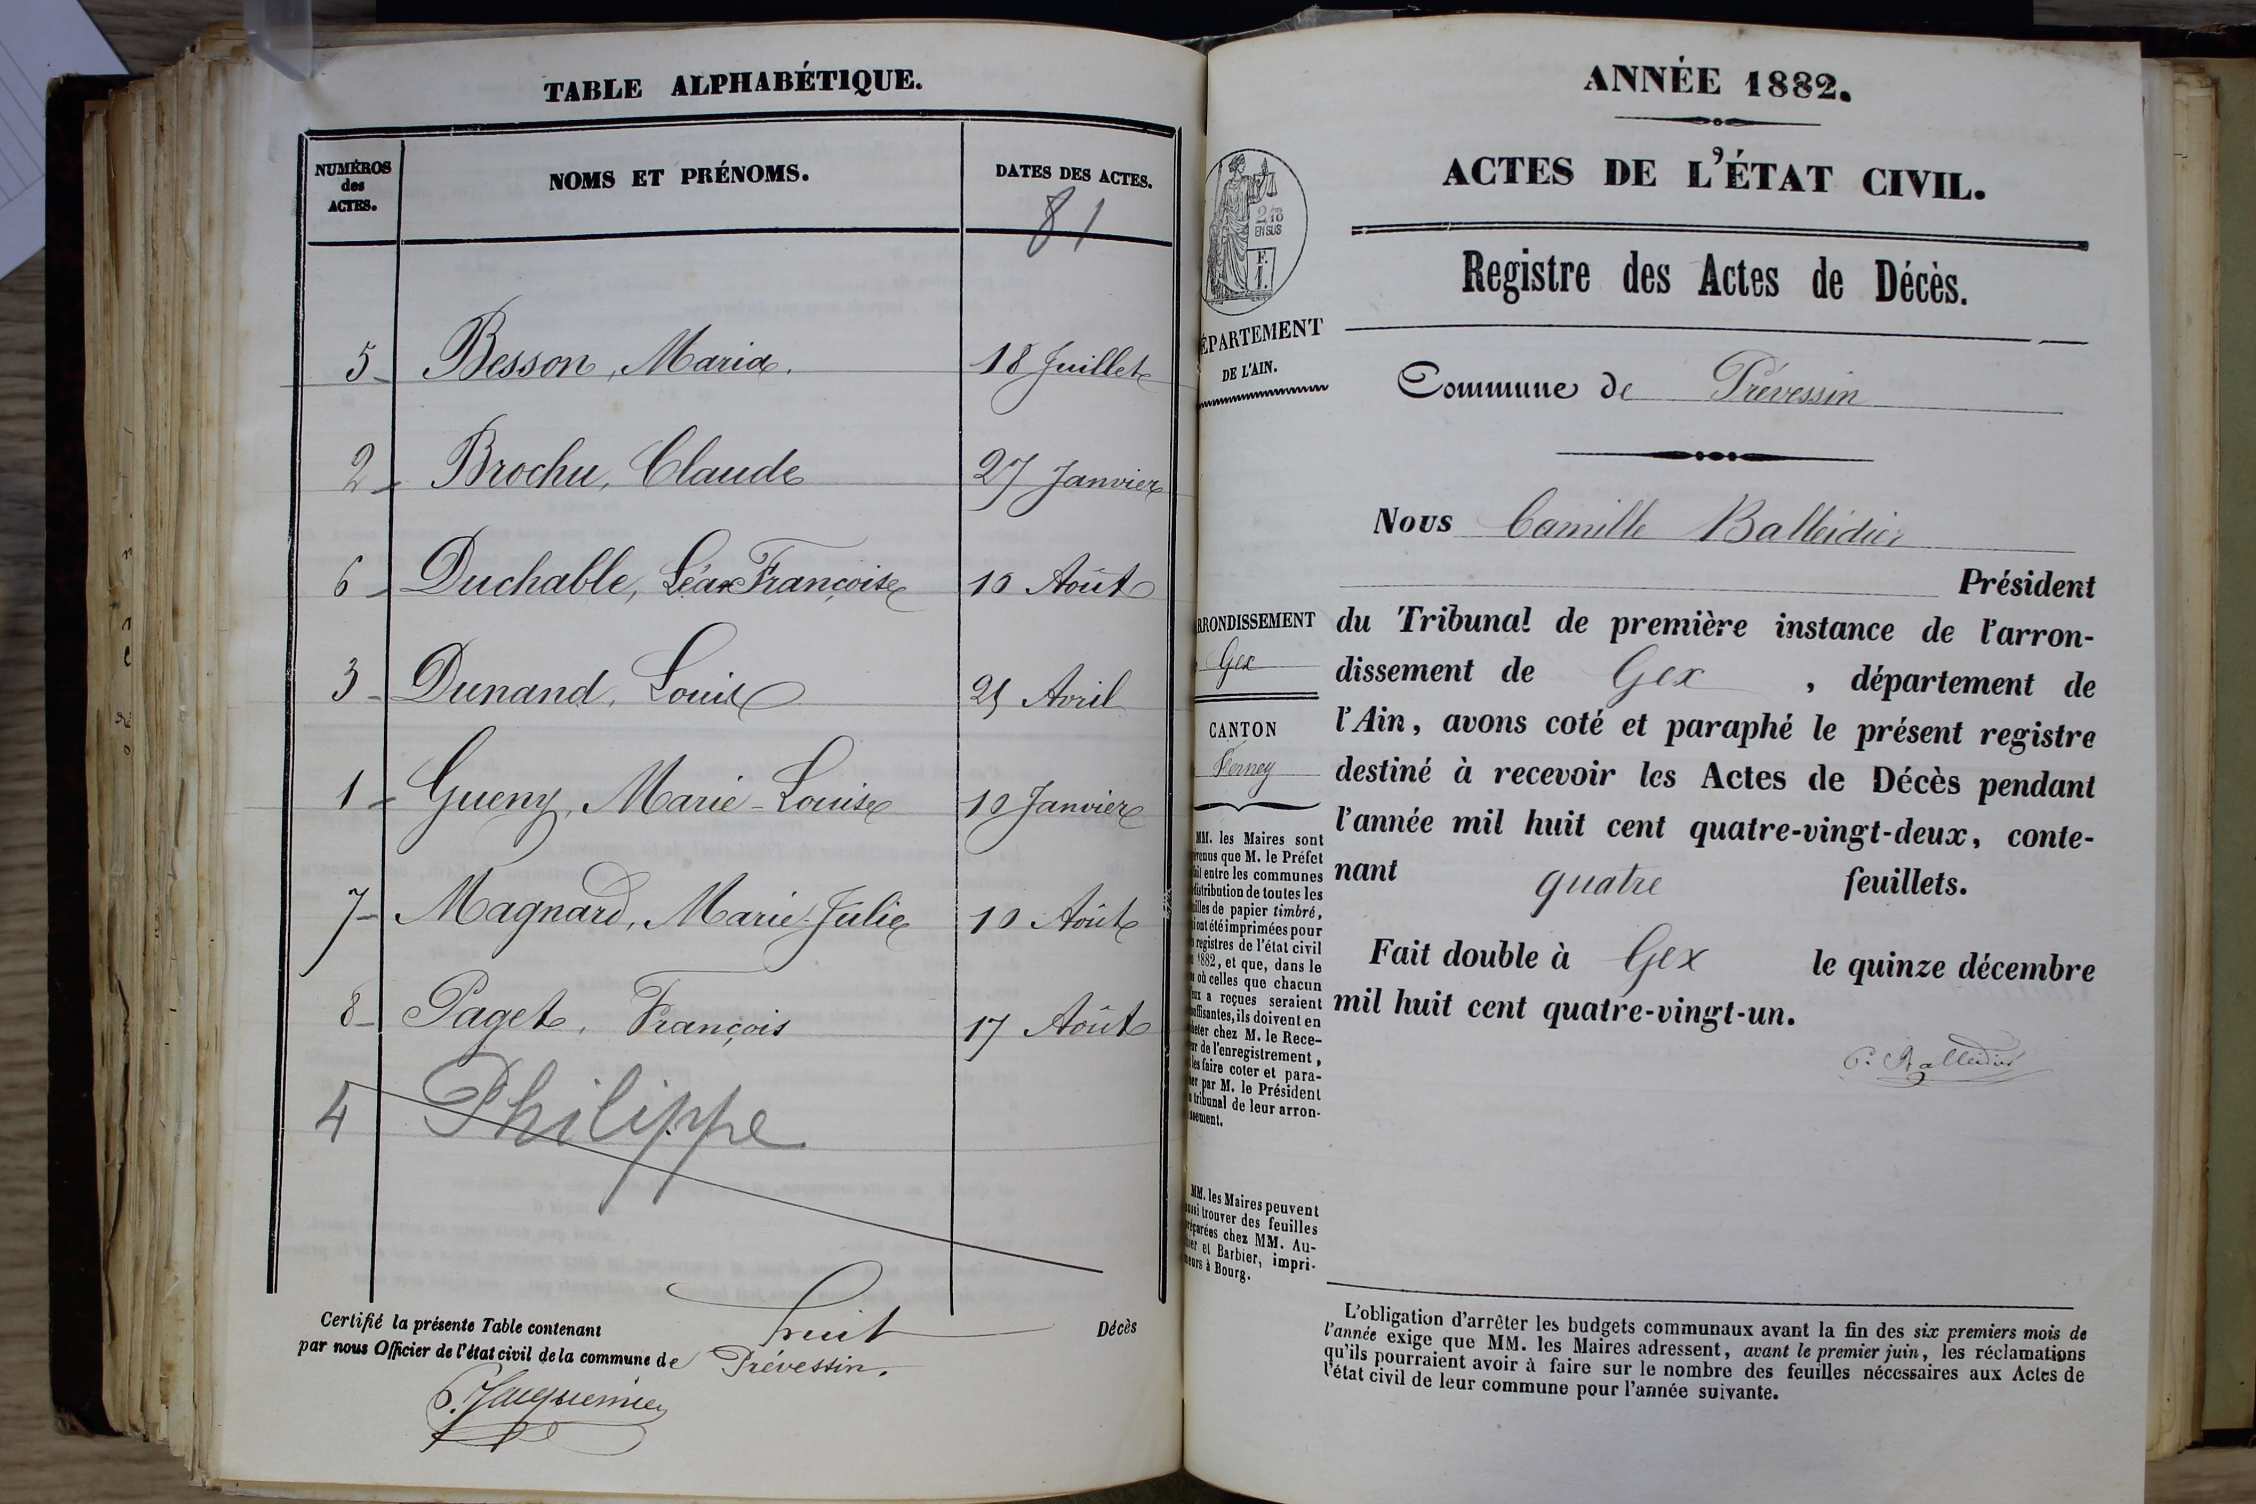 TABLE ALPHABÉTIQUE.
NUMÉROS des ACTES.
NOMS ET PRÉNOMS.
DATES DES ACTES.
81
5 Besson, Maria. 18 Juillet
2 Brochu, Claude 27 Janvier
6 Duchable, Léa Françoise 10 Août
3 Dunand, Louis 25 Avril
1 Gueny, Marie-Louise 10 Janvier
7 Magnard, Marie-Julie 10 Août
8 Paget, François 17 Août
4 Philippe
Certifié la présente Table contenant huit Décès
par nous Officier de l'état civil de la commune de Prévessin.
ANNÉE 1882.
ACTES DE L'ÉTAT CIVIL.
2/10
EN SUS
F.
1.
Registre des Actes de Décès.
ÉPARTEMENT
DE L'AIN.
Commune de Prévessin
Nous Camille Balleidier
Président
du Tribunal de première instance de l'arron-
dissement de Gex, département de
l'Ain, avons coté et paraphé le présent registre
destiné à recevoir les Actes de Décès pendant
l'année mil huit cent quatre-vingt-deux, conte-
nant quatre feuillets.
Fait double à Gex le quinze décembre
mil huit cent quatre-vingt-un.
C. Balleidier
RRONDISSEMENT
Gex
CANTON
Ferney
MM. les Maires sont
que M. le Préfet
entre les communes
distribution de toutes les
de papier timbré,
ont été imprimées pour
registres de l'état civil
1882, et que, dans le
où celles que chacun
a reçues seraient
ils doivent en
chez M. le Rece-
de l'enregistrement,
les faire coter et para-
par M. le Président
tribunal de leur arron-
MM. les Maires peuvent
trouver des feuilles
chez MM. Au-
et Barbier, impri-
à Bourg.
L'obligation d'arrêter les budgets communaux avant la fin des six premiers mois de
l'année exige que MM. les Maires adressent, avant le premier juin, les réclamations
qu'ils pourraient avoir à faire sur le nombre des feuilles nécessaires aux Actes de
l'état civil de leur commune pour l'année suivante.